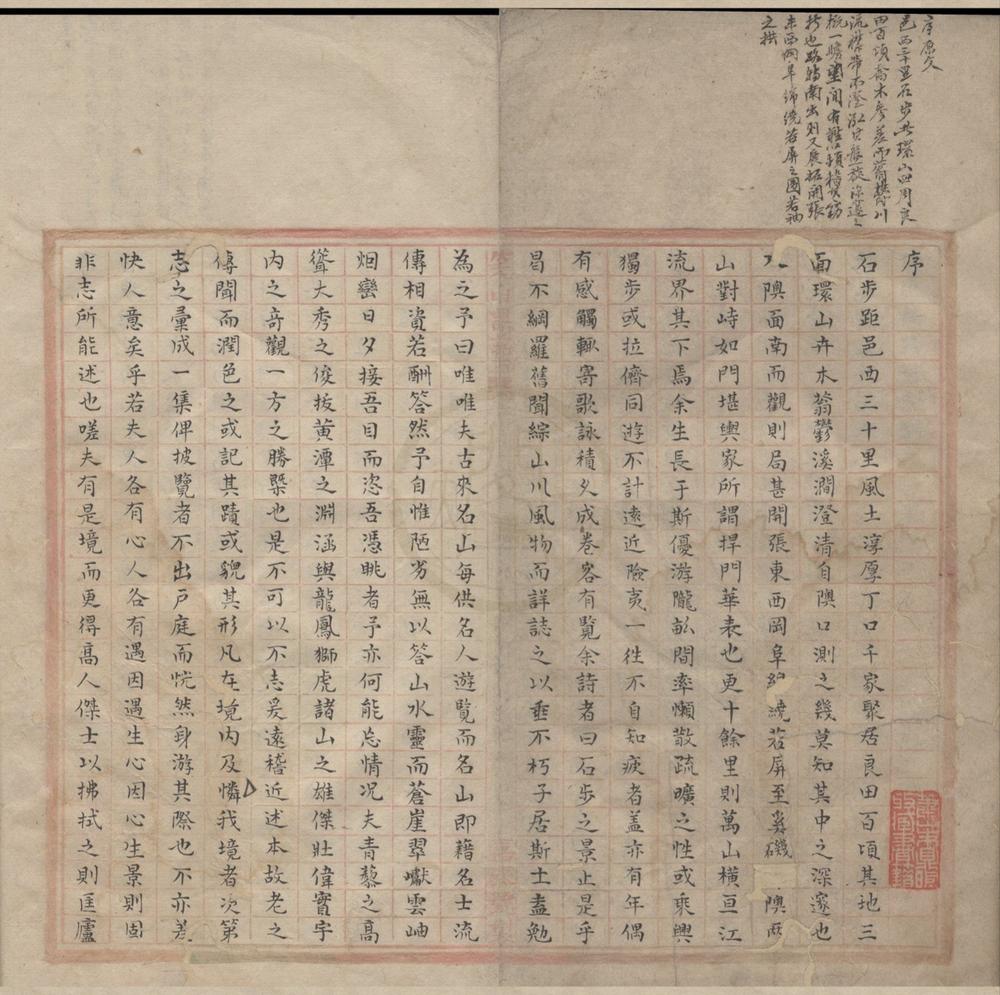 序原文
邑西三十里石步
環山四周良
田百頃喬木參差而蓊
川
流襟帶不
一瞻
間有
也路轉南出則又展拓開張
東西岡阜綿繞若屏之圍若
之拱
序
石步距邑西三十里風土淳厚丁口千家聚居良田百頃其地三
面環山卉木蓊鬱溪澗澄清自隩口測之幾莫知其中之深邃也
隩面南而觀則局甚開張東西岡阜綿繞若屏至
磯
隩兩
山對峙如門堪輿家所謂捍門華表也更十餘里則萬山橫亘江
流界其下焉余生長于斯優游隴畝間率懶散疏曠之性或乘興
獨步或拉儕同遊不計遠近險夷一徃不自知疲者盖亦有年偶
有感觸輙寄歌詠積久成卷客有覽余詩者曰石步之景止是乎
曷不網羅舊聞綜山川風物而詳誌之以垂不朽子居斯土盍勉
為之予曰唯唯夫古來名山每供名人遊覽而名山即藉名士流
傳相資若酬答然予自惟陋劣無以答山水靈而蒼崖翠巘雲岫
烟巒日夕接吾目而恣吾憑眺者予亦何能忘情况夫青藜之高
聳大秀之俊拔黄潭之淵涵與龍鳳獅虎諸山之雄傑壯偉實宇
内之奇觀一方之勝槩也是不可以不志爰遠稽近述本故老之
傳聞而潤色之或記其蹟或貌其形凡在境内及憐我境者次第
志之彙成一集俾披覽者不出戸庭而恍然身游其際也不亦差
快人意矣乎若夫人各有心人各有遇因遇生心因心生景則固
非志所能述也嗟夫有是境而更得高人傑士以拂拭之則匡廬